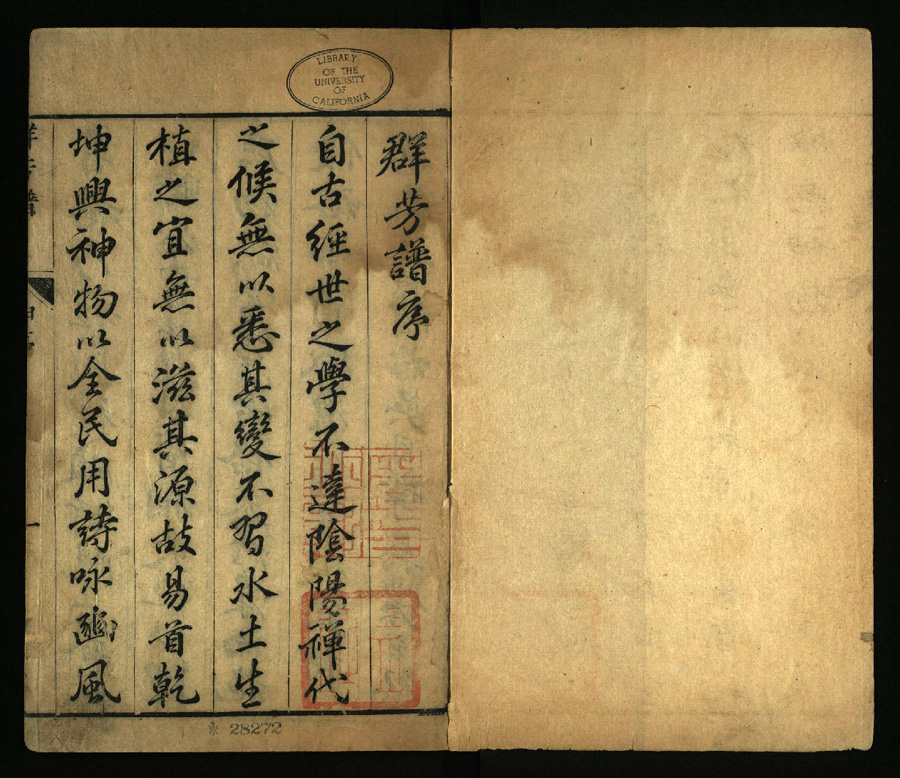 LIBRARY
OF THE
UNIVERSITY
OF
CALIFORNIA
群芳譜序
自古經世之學不達陰陽禪代
之候無以悉其變不習水土生
植之宜無以滋其源故易首乾
坤興神物以全民用詩咏豳風
一
※ 28272